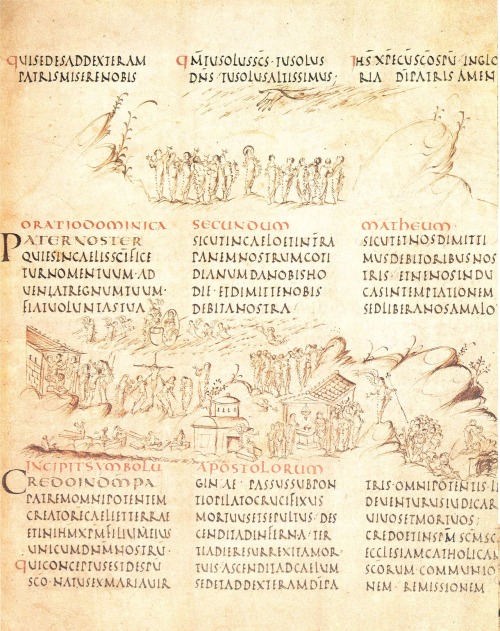 QUISEDESADDEXTERAM
PATRISMISERENOBIS
QM̄TUSOLUSSC̄S·TUSOLUS
DN̄S·TUSOLUSALTISSIMUS·
IHS̄XP̄ECUSC̄OSPŪ·INGLO
RIA DĪPATRIS AMEN
ORATIODOMINICA
PATERNOSTER
QUIESINCAELISSC̄IFICE
TURNOMENTUUM·AD
UENIATREGNUMTUUM·
FIATUOLUNTASTUA
SECUNDUM
SICUTINCAELOETINTRA
PANEMNOSTRUMCOTI
DIANUMDANOBISHO
DIE·ETDIMITTENOBIS
DEBITANOSTRA
MATHEUM·
SICUTETNOSDIMITTI
MUSDEBITORIBUSNOS
TRIS·ETNENOSINDU
CASINTEMPTATIONEM
SEDLIBERANOSAMALO
INCIPITSYMBOLU
CREDOINDM̄PA
PATREMOMNIPOTENTEM
CREATORECAELIETTERRAE
ETINIHM̄XPM̄FILIUM̄EIUS
UNICUMDNM̄NOSTRU·
QUICONCEPTUSESTDESPU
SCO·NATUSEXMARIAUIR
APOSTOLORUM
GINAE·PASSUSSUBPON
TIOPILATOCRUCIFIXUS
MORTUUSETSEPULTUS·DES
CENDITADINFERNA·TER
TIADIERESURREXITAMOR
TUIS·ASCENDITADCAELUM
SEDETADDEXTERAMDĪPA
TRIS·OMNIPOTENTIS·I
DEUENTURUSIUDICAR
UIUOSETMORTUOS;
CREDOETINSPM̄SCM̄SC
ECCLESIAMCATHOLICA
SCORUM COMMUNIO
NEM·REMISSIONEM